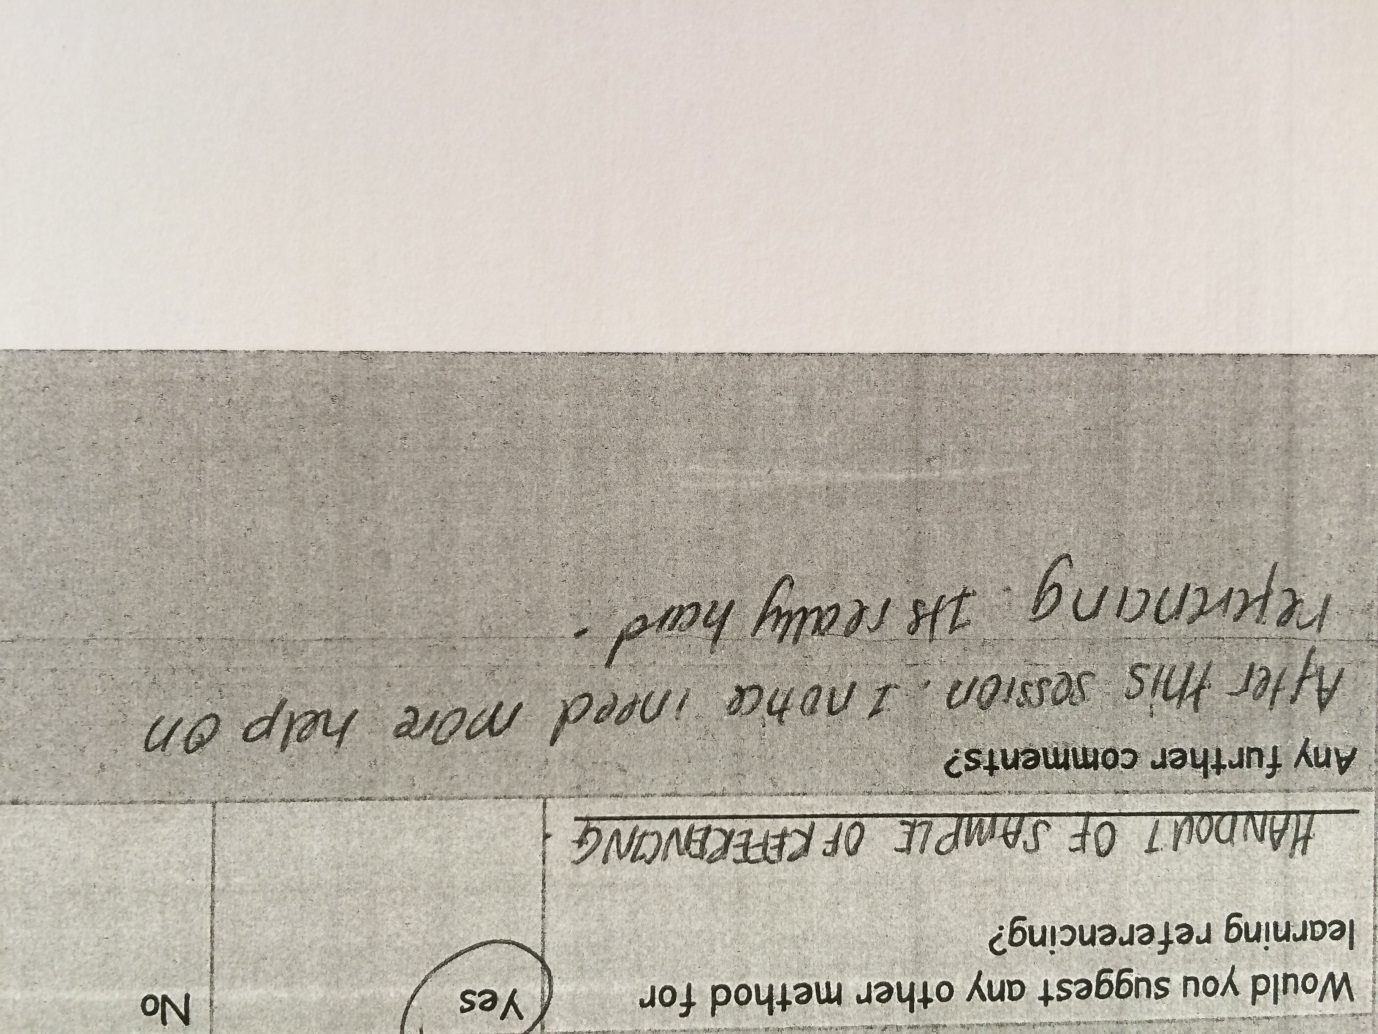 Would you suggest any other method for
learning referencing?
Yes
No
HANDOUT OF SAMPLE OF REFERENCING.
Any further comments?
After this session. I notice ineed more help on
referencing. Its really hard.